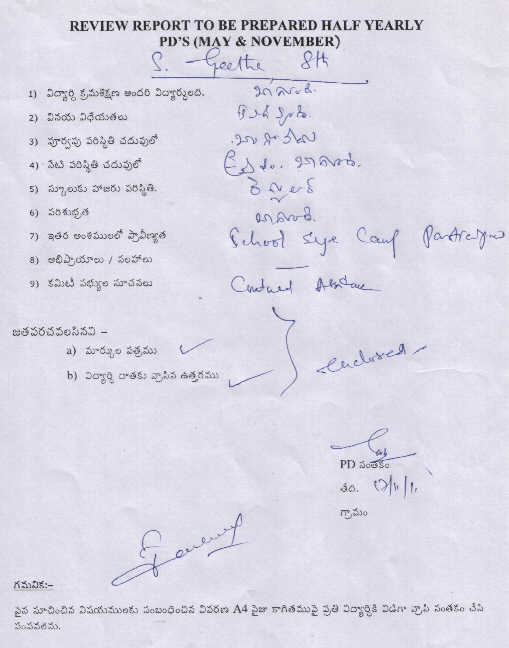 REVIEW REPORT TO BE PREPARED HALF YEARLY
PD'S (MAY & NOVEMBER)
S. Geetha 8th
1) విద్యార్థి క్రమశిక్షణ అందరి విద్యార్థులది. బాగుంది.
2) వినయ విధేయతలు
3) పూర్వపు పరిస్థితి చదువులో
4) నేటి పరిస్థితి చదువులో బాగుంది.
5) స్కూలుకు హాజరు పరిస్థితి. రెగ్యులర్
6) పరిశుభ్రత బాగుంది.
7) ఇతర అంశములలో ప్రావీణ్యత School eye Camp
8) అభిప్రాయాలు / సలహాలు —
9) కమిటీ సభ్యుల సూచనలు
జతపరచవలసినవి –
a) మార్కుల పత్రము ✓
b) విద్యార్థి దాతకు వ్రాసిన ఉత్తరము ✓
enclosed
PD సంతకం
తేది.
గ్రామం
గమనిక:–
పైన సూచించిన విషయములకు సంబంధించిన వివరణ A4 సైజు కాగితముపై ప్రతి విద్యార్థికి విడిగా వ్రాసి సంతకం చేసి
పంపవలెను.